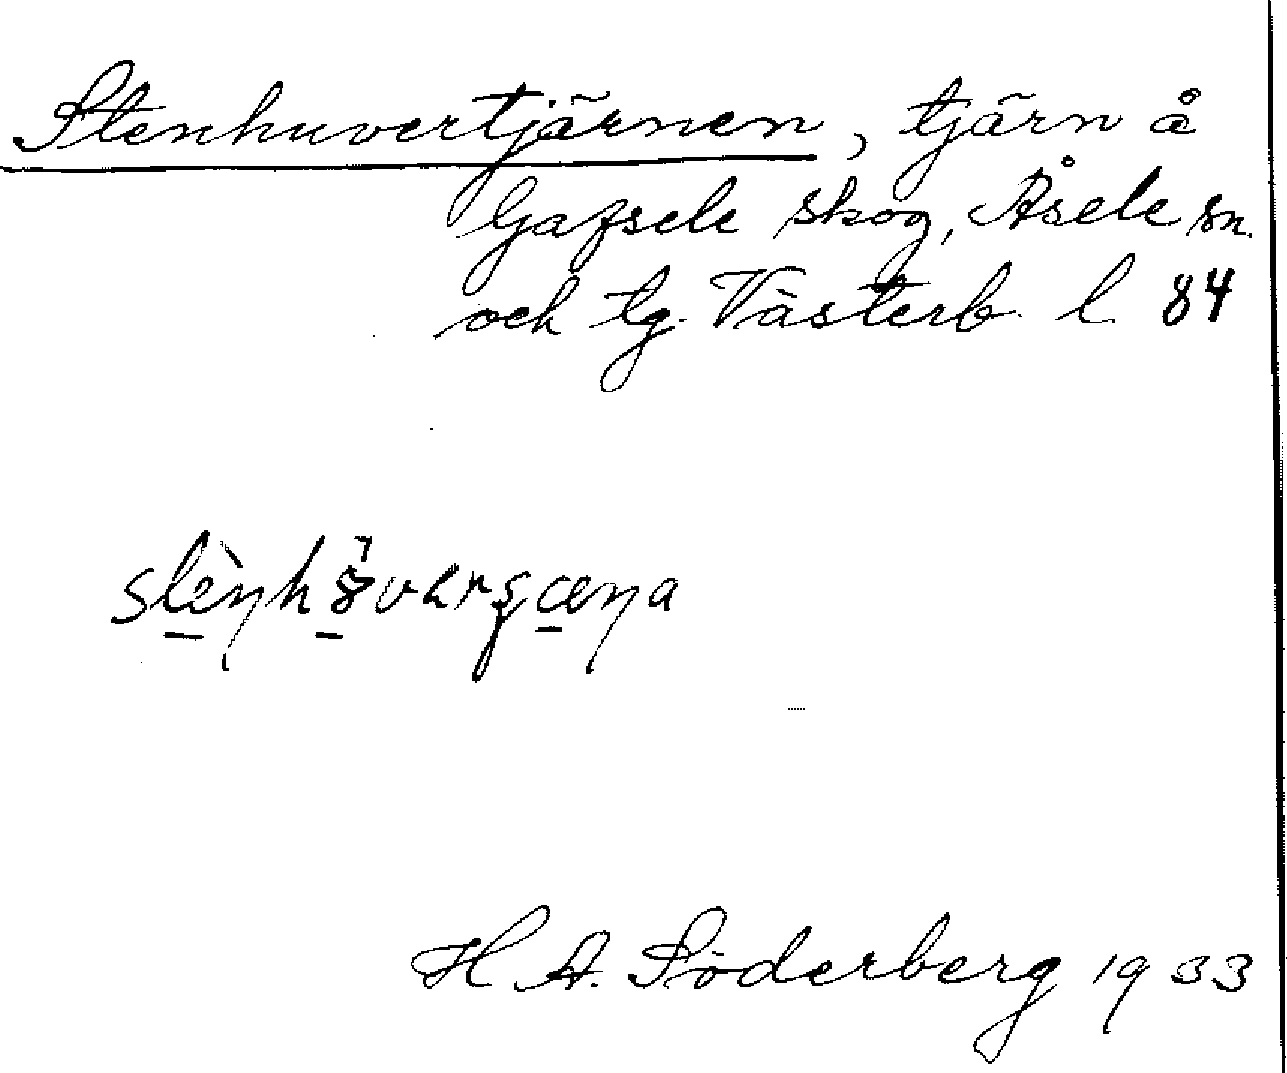 Stenhuvertjärnen, tjärn å
Gafsele skog, Åsele sn.
och tg. Västerb. l. 84
H. A. Söderberg 1933